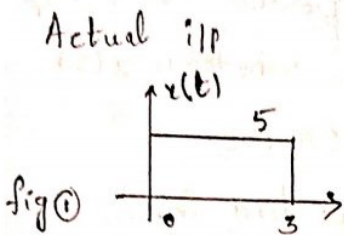 Actual i/p
x(t)
5
fig ①
0
3